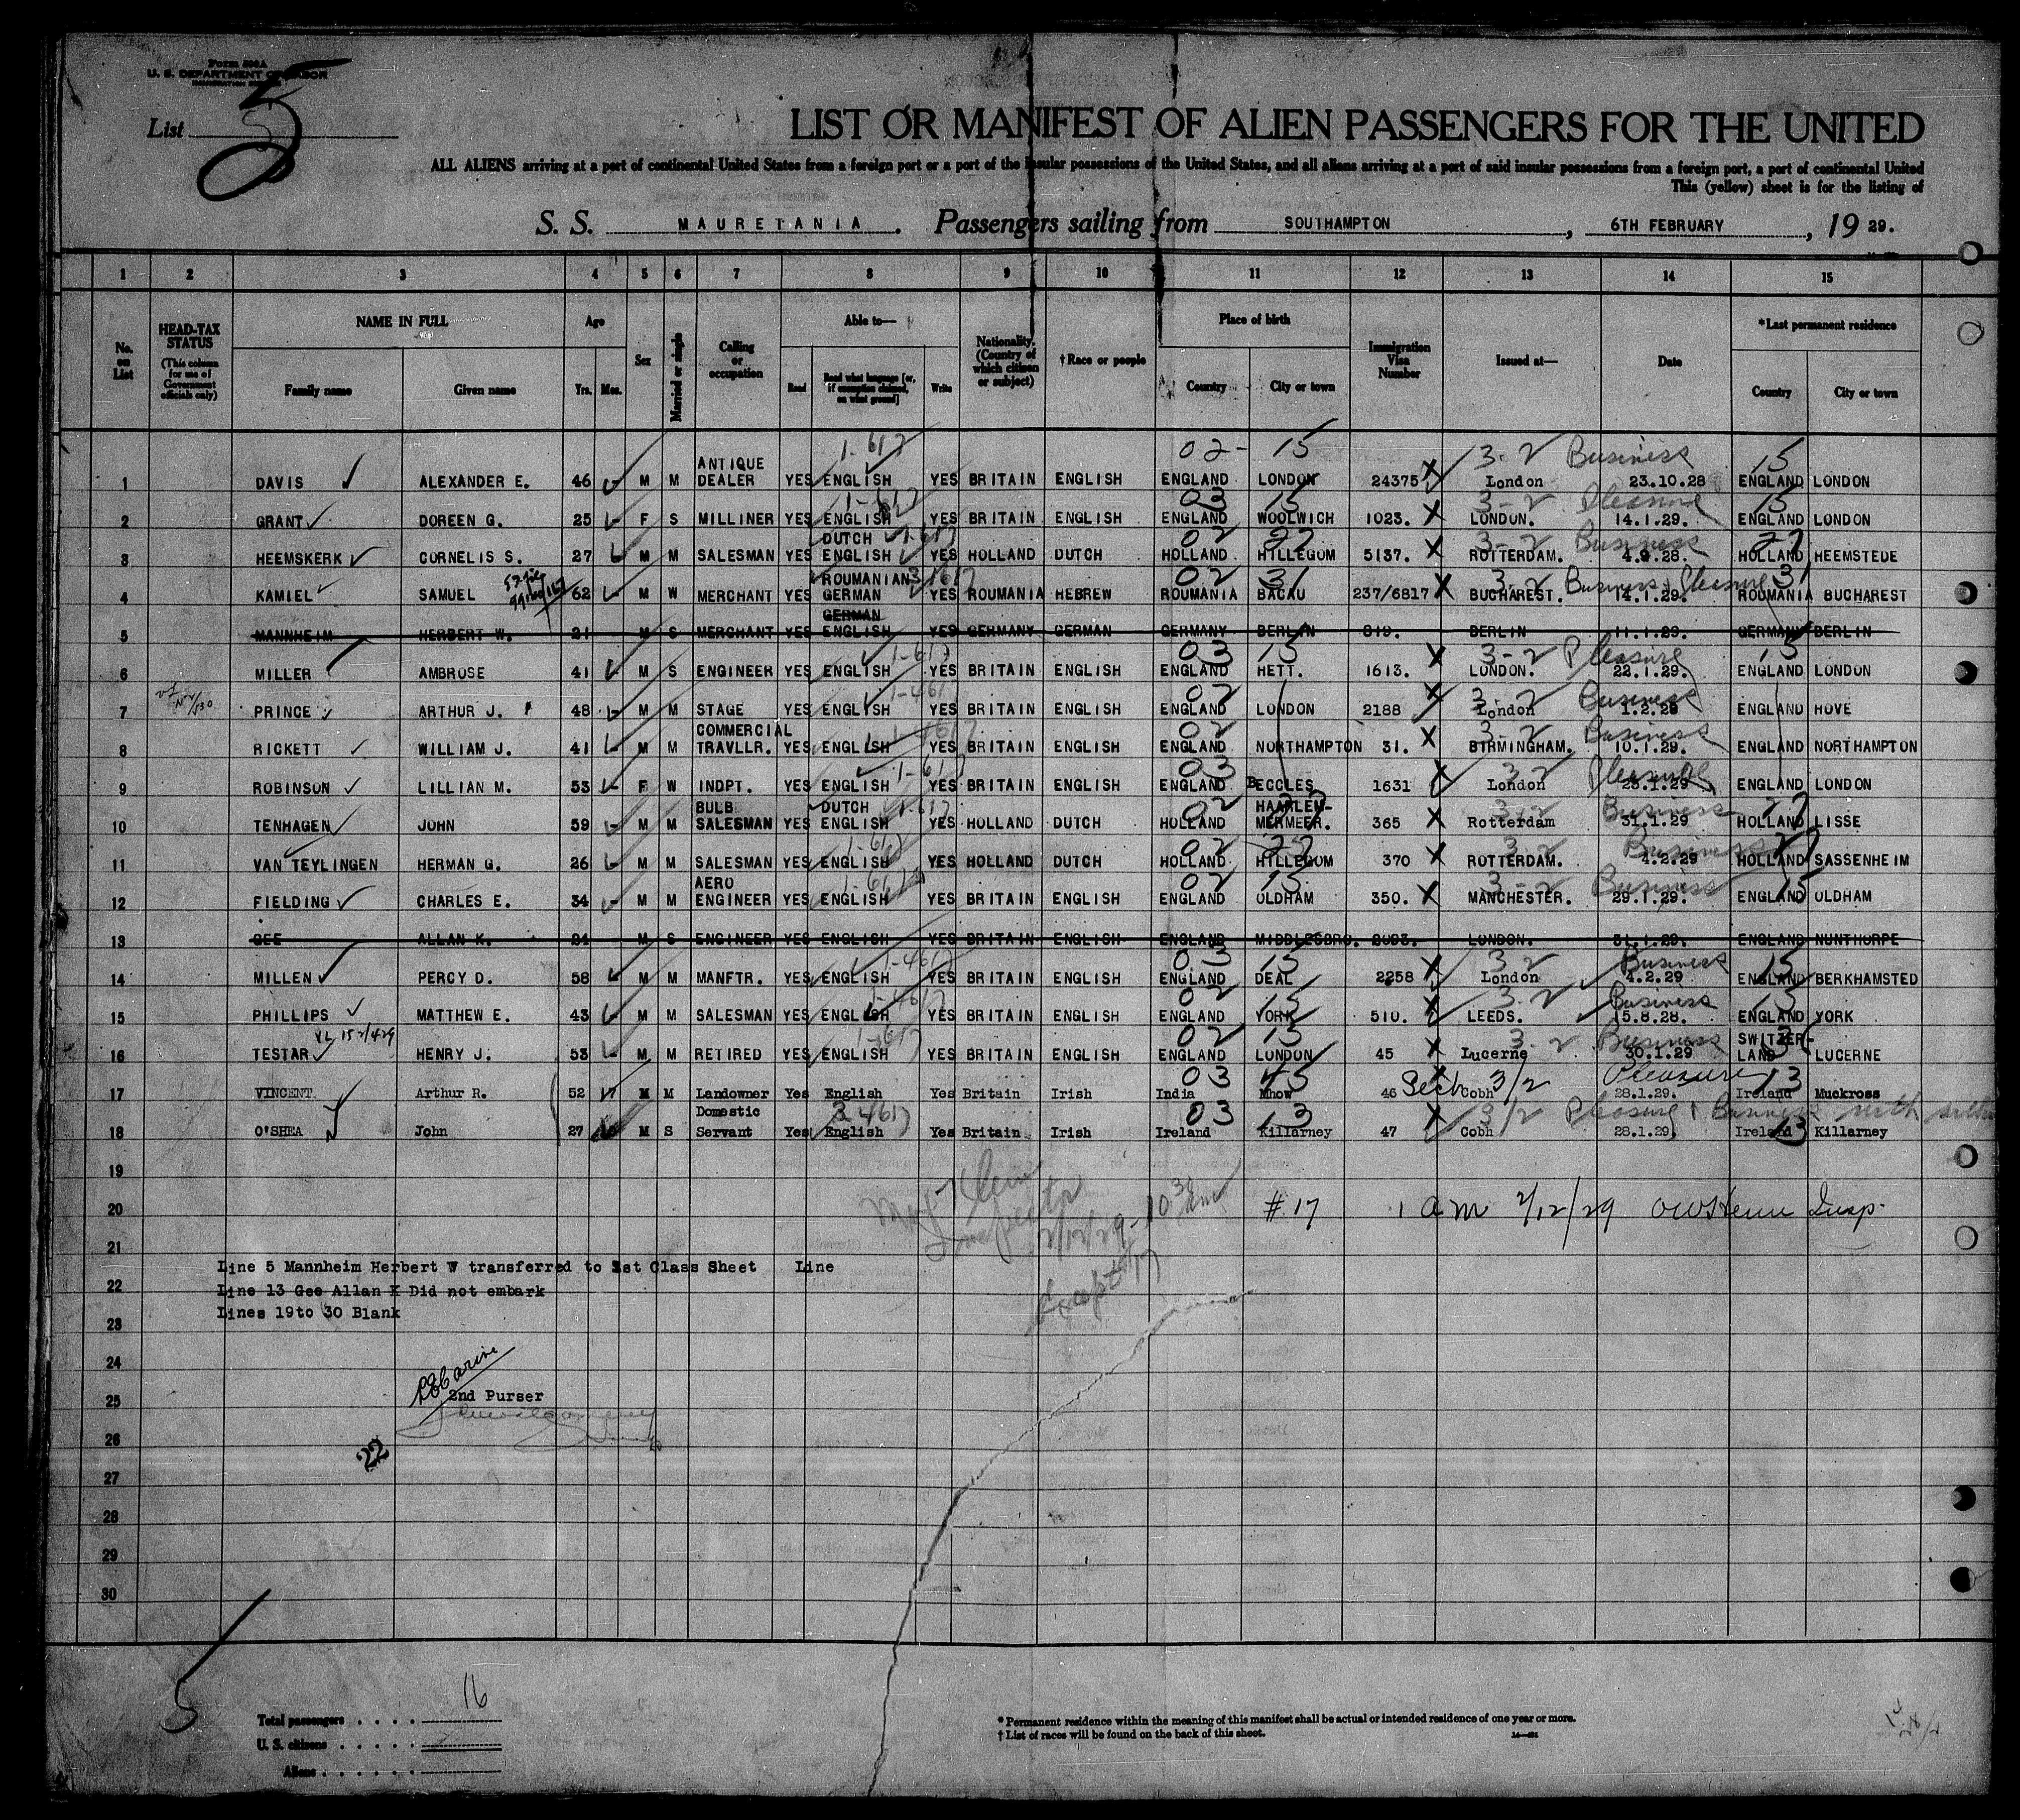 Form 500A
U. S. DEPARTMENT OF LABOR
List 5
LIST OR MANIFEST OF ALIEN PASSENGERS FOR THE UNITED
ALL ALIENS arriving at a port of continental United States from a foreign port or a port of the insular possessions of the United States, and all aliens arriving at a port of said insular possessions from a foreign port, a port of continental United
This (yellow) sheet is for the listing of
S. S. MAURETANIA. Passengers sailing from SOUTHAMPTON, 6TH FEBRUARY, 19 29.
1 2 3 4 5 6 7 8 9 10 11 12 13 14 15
No. on List
HEAD-TAX STATUS (This column for use of Government officials only)
NAME IN FULL Family name Given name
Age Yrs. Mos.
Sex
Married or single
Calling or occupation
Able to— Read Read what language [or, if exemption claimed, on what ground] Write
Nationality. (Country of which citizen or subject)
†Race or people
Place of birth Country City or town
Immigration Visa Number
Issued at—
Date
*Last permanent residence Country City or town
02- 15 3-2 Business 15
1 DAVIS ALEXANDER E. 46 M M ANTIQUE DEALER YES ENGLISH YES BRITAIN ENGLISH ENGLAND LONDON 24375 London 23.10.28 ENGLAND LONDON
03 15 3-2 Pleasure 15
2 GRANT DOREEN G. 25 F S MILLINER YES ENGLISH YES BRITAIN ENGLISH ENGLAND WOOLWICH 1023. LONDON. 14.1.29. ENGLAND LONDON
02 27 3-2 Business 27
3 HEEMSKERK CORNELIS S. 27 M M SALESMAN YES DUTCH ENGLISH YES HOLLAND DUTCH HOLLAND HILLEGOM 5137. ROTTERDAM. 4.9.28. HOLLAND HEEMSTEDE
02 31 3-2 Business Pleasure 31
4 KAMIEL SAMUEL 62 M W MERCHANT YES ROUMANIAN GERMAN YES ROUMANIA HEBREW ROUMANIA BACAU 237/6817 BUCHAREST. 14.1.29. ROUMANIA BUCHAREST
5 MANNHEIM HERBERT W. 21 M S MERCHANT YES GERMAN ENGLISH YES GERMANY GERMAN GERMANY BERLIN 819. BERLIN 11.1.29. GERMANY BERLIN
03 15 3-2 Pleasure 15
6 MILLER AMBROSE 41 M S ENGINEER YES ENGLISH YES BRITAIN ENGLISH ENGLAND HETT. 1613. LONDON. 22.1.29. ENGLAND LONDON
02 3-2 Business
7 PRINCE ARTHUR J. 48 M M STAGE YES ENGLISH YES BRITAIN ENGLISH ENGLAND LONDON 2188 London 1.2.28 ENGLAND HOVE
02 3-2 Business
8 RICKETT WILLIAM J. 41 M M COMMERCIAL TRAVLLR. YES ENGLISH YES BRITAIN ENGLISH ENGLAND NORTHAMPTON 31. BIRMINGHAM. 10.1.29. ENGLAND NORTHAMPTON
03 3-2 Pleasure
9 ROBINSON LILLIAN M. 53 F W INDPT. YES ENGLISH YES BRITAIN ENGLISH ENGLAND BECCLES 1631 London 23.1.29 ENGLAND LONDON
02 3-2 Business
10 TENHAGEN JOHN 59 M M BULB SALESMAN YES DUTCH ENGLISH YES HOLLAND DUTCH HOLLAND HAARLEM-MERMEER. 365 Rotterdam 31.1.29 HOLLAND LISSE
02 27 3-2 Business
11 VAN TEYLINGEN HERMAN G. 26 M M SALESMAN YES ENGLISH YES HOLLAND DUTCH HOLLAND HILLEGOM 370 ROTTERDAM. 4.2.29 HOLLAND SASSENHEIM
02 15 3-2 Business 15
12 FIELDING CHARLES E. 34 M M AERO ENGINEER YES ENGLISH YES BRITAIN ENGLISH ENGLAND OLDHAM 350. MANCHESTER. 29.1.29. ENGLAND OLDHAM
13 GEE ALLAN K. 24 M S ENGINEER YES ENGLISH YES BRITAIN ENGLISH ENGLAND MIDDLESBRO. 2093. LONDON. 31.1.29. ENGLAND NUNTHORPE
03 15 3-2 Business 15
14 MILLEN PERCY D. 58 M M MANFTR. YES ENGLISH YES BRITAIN ENGLISH ENGLAND DEAL 2258 London 4.2.29 ENGLAND BERKHAMSTED
02 15 3-2 Business 15
15 PHILLIPS MATTHEW E. 43 M M SALESMAN YES ENGLISH YES BRITAIN ENGLISH ENGLAND YORK 510. LEEDS. 15.8.28. ENGLAND YORK
02 15 3-2 Business
16 TESTAR HENRY J. 53 M M RETIRED YES ENGLISH YES BRITAIN ENGLISH ENGLAND LONDON 45 Lucerne 30.1.29 SWITZER-LAND LUCERNE
03 45 3/2 Pleasure 13
17 VINCENT Arthur R. 52 M M Landowner Yes English Yes Britain Irish India Mhow 46 Cobh 28.1.29. Ireland Muckross
03 13 3/2 Pleasure Business with
18 O'SHEA John 27 M S Domestic Servant Yes English Yes Britain Irish Ireland Killarney 47 Cobh 28.1.29, Ireland 13 Killarney
19
20 #17 1 am 2/12/29 Insp.
Inspector 2/12/29-10 30 am
Except #17
21
Line 5 Mannheim Herbert W transferred to 1st Class Sheet Line
22
Line 13 Gee Allan K Did not embark
Lines 19to 30 Blank
23
24
25 2nd Purser
26
22
27
28
29
30
5
Total passengers 16
U. S. citizens
Aliens
* Permanent residence within the meaning of this manifest shall be actual or intended residence of one year or more.
† List of races will be found on the back of this sheet.